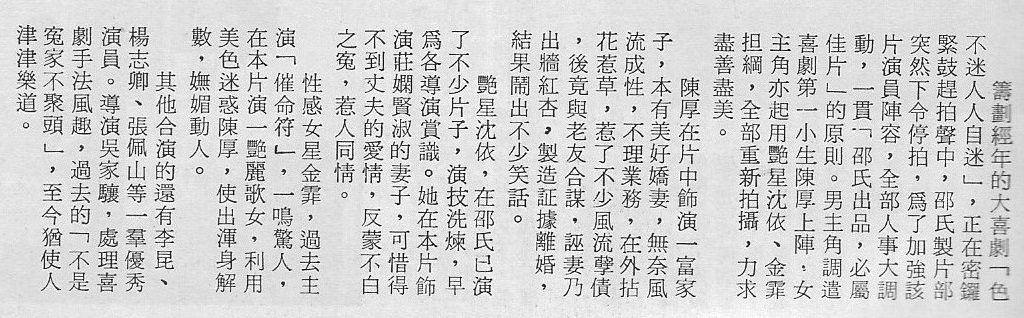 籌劃經年的大喜劇「色
不迷人人自迷」，正在密鑼
緊鼓趕拍聲中，邵氏製片部
突然下令停拍，爲了加強該
片演員陣容，全部人事大調
動，一貫「邵氏出品，必屬
佳片」的原則。男主角調遣
喜劇第一小生陳厚上陣，女
主角亦起用艷星沈依、金霏
担綱，全部重新拍攝，力求
盡善盡美。
陳厚在片中飾演一富家
子，本有美好嬌妻，無奈風
流成性，不理業務，在外拈
花惹草，惹了不少風流孽債
，後竟與老友合謀，誣妻乃
出牆紅杏，製造証據離婚，
結果鬧出不少笑話。
艷星沈依，在邵氏已演
了不少片子，演技洗煉，早
爲各導演賞識。她在本片飾
演莊嫻賢淑的妻子，可惜得
不到丈夫的愛情，反蒙不白
之寃，惹人同情。
性感女星金霏，過去主
演「催命符」，一鳴驚人，
在本片演一艷麗歌女，利用
美色迷惑陳厚，使出渾身解
數，嫵媚動人。
其他合演的還有李昆、
楊志卿、張佩山等一羣優秀
演員。導演吳家驤，處理喜
劇手法風趣，過去的「不是
寃家不聚頭」，至今猶使人
津津樂道。